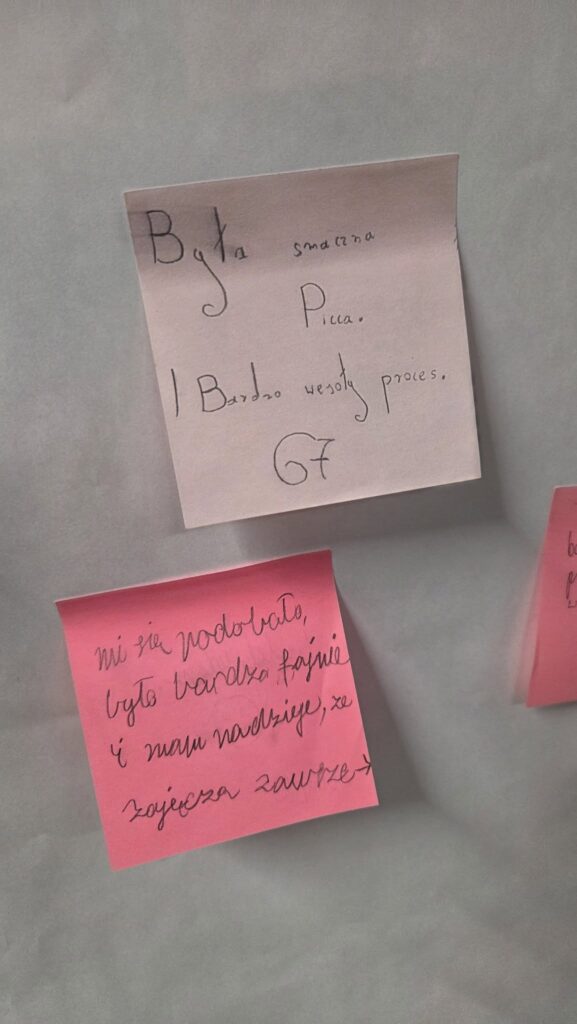 Była smaczna
Picca.
I Bardzo wesoły proces.
67
mi się podobało,
było bardzo fajnie
i mam nadzieje, że
zajęcza zawsze →